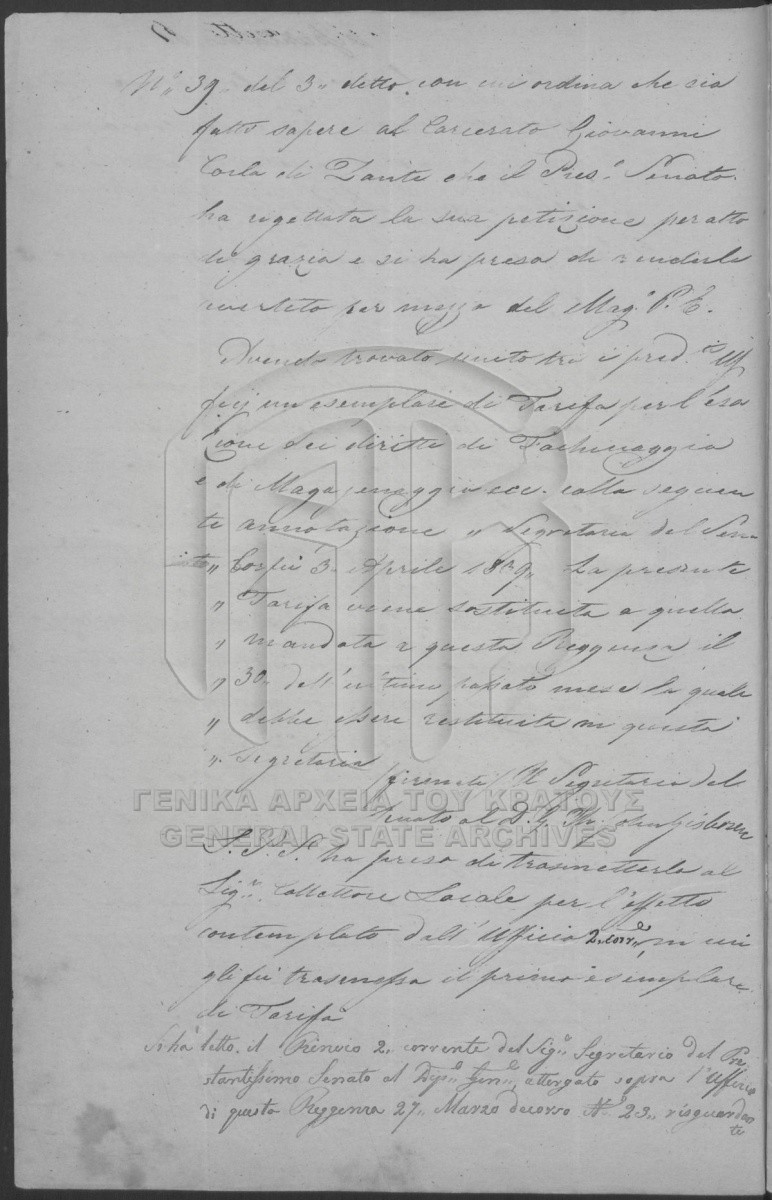 N.º 39 del 3„ detto con cui ordina che sia
fatto sapere al Carcerato Giovanni
Corla di Zante che il Pres.º Senato
ha rigettata la sua petizione per atto
di grazia e si ha preso di renderlo
avertito per mezzo del Mag.º P. E.
Avendo trovato unito tra i pred.ti Uff
ficij un esemplare di Tarifa per l'esa
zione dei diritti di Fachinaggio
e di Magazenaggio ecc. colla seguen
te annotazione „ Segretaria del Sena
to „ Corfù 3. Aprile 1829„ La presente
„ Tarifa viene sostituita a quella
„ mandata a questa Reggenza il
„ 30„ dell'ultimo passato mese la quale
„ debbe essere restituita in questa
„ Segretaria
firmato Il Segretario del
Senato al D. G.
S. S. S. ha preso di trasmetterlo al
Sig.r Collettore Locale per l'effetto
contemplato dall'Ufficio 2„ corr.e, in cui
gli fù trasmessa il primo esemplare
di Tarifa
Si ha letto il Rinvio 2„ corrente del Sig.r Segretario del Pre
stantissimo Senato al Dip.º Gen.e, attergato sopra l'Ufficio
di questa Reggenza 27„ Marzo decorso N.º 23„ risguardan
te
ΓΕΝΙΚΑ ΑΡΧΕΙΑ ΤΟΥ ΚΡΑΤΟΥΣ
GENERAL STATE ARCHIVES